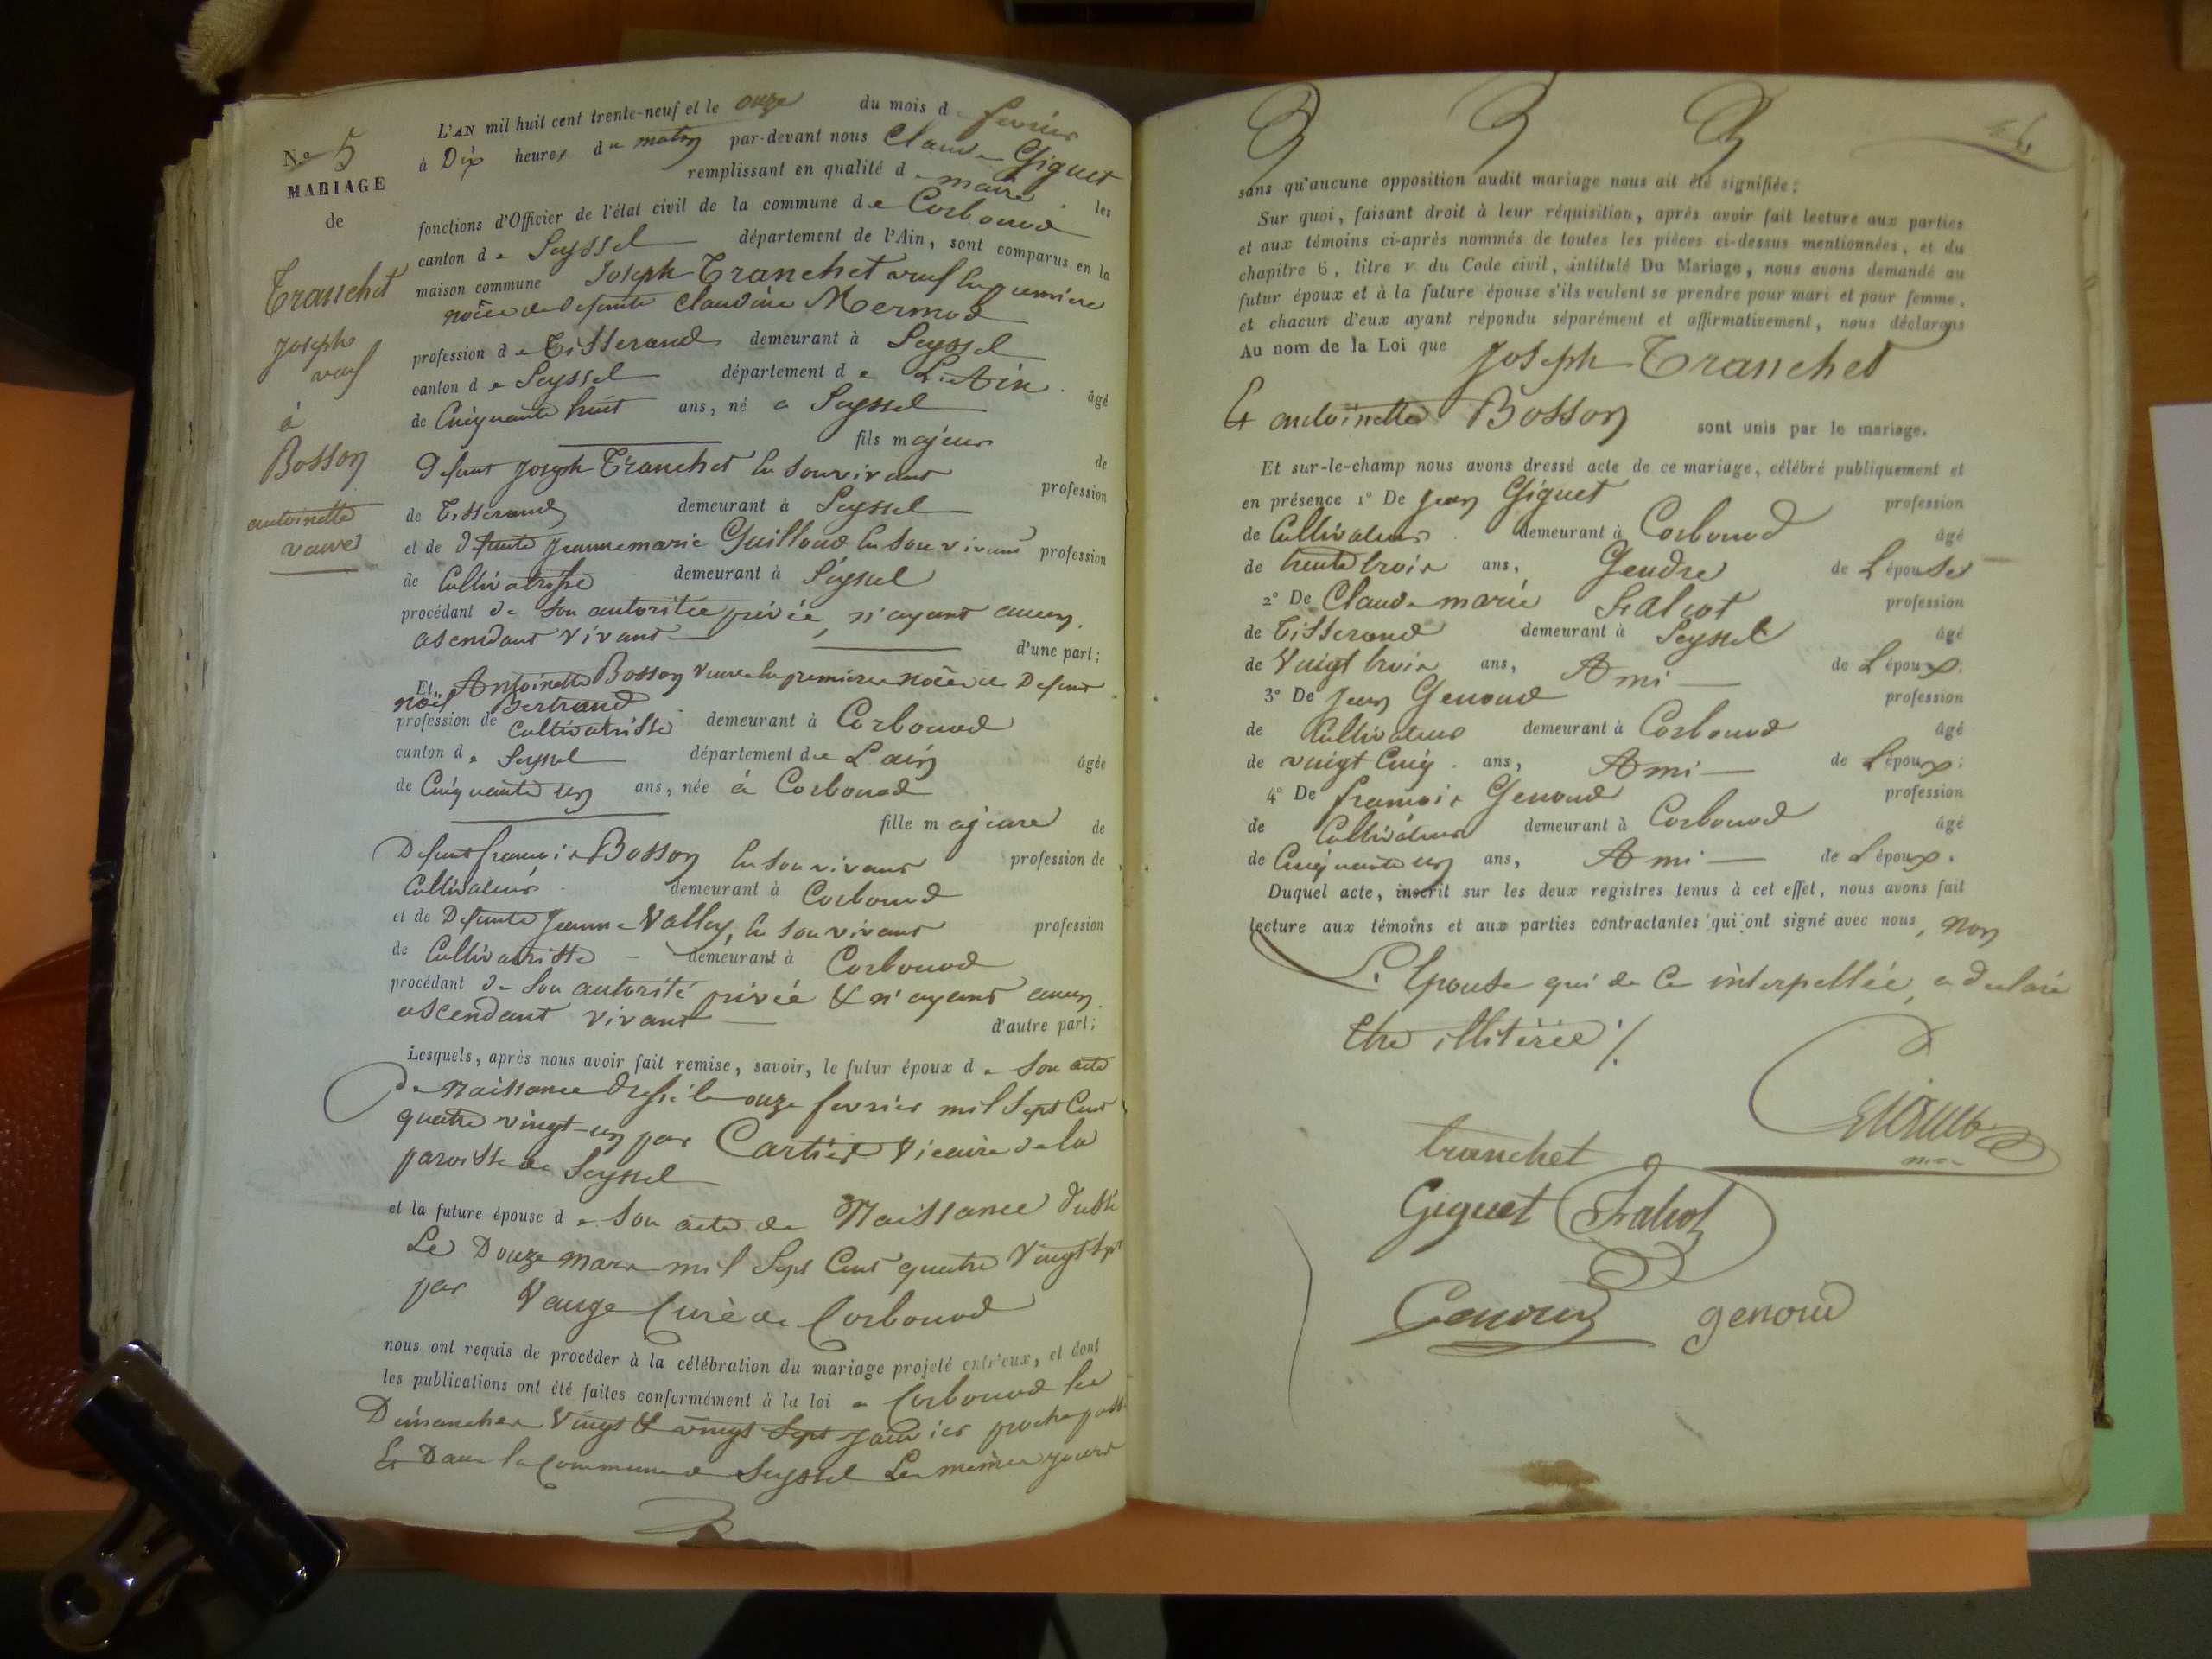 N.o 5
MARIAGE
de
Tranchet
joseph
veuf
à
Bosson
antoinette
veuve
L'AN mil huit cent trente-neuf et le onze du mois de fevrier
à Dix heures du matin par-devant nous Claude Giguet
remplissant en qualité de maire les
fonctions d'Officier de l'état civil de la commune de Corbonod
canton de Seyssel département de l'Ain, sont comparus en la
maison commune Joseph Tranchet veuf en premiere
noce de defunte Claudine Mermod
profession de Tisserand demeurant à Seyssel
canton de Seyssel département de L'Ain âgé
de Cinquante huit ans, né a Seyssel
fils majeur de
Defunt joseph Tranchet En son vivant profession
de Tisserand demeurant à Seyssel
et de Defunte jeannemarie Guilloud En son vivant profession
de Cultivatrisse demeurant à Seyssel
procédant de son autoritée privée, n'ayant aucun
asendant vivant d'une part;
Et Antoinette Bosson veuve En premiere noce de Defunt
noël Bertrand
profession de Cultivatrisse demeurant à Corbonod
canton de Seyssel département de L'ain âgée
de Cinquante un ans, née à Corbonod
fille majeure de
Defunt francois Bosson En son vivant profession de
Cultivateur demeurant à Corbonod
et de Defunte jeanne Vallay, En son vivant profession
de Cultivatrisse demeurant à Corbonod
procédant de son autorité privée & n'ayant aucun
ascendant vivant d'autre part;
Lesquels, après nous avoir fait remise, savoir, le futur époux de son acte
de Naissance Dressé le onze fevrier mil sept Cent
quatre vingt-un par Cartier Vicaire de la
paroisse de Seyssel
et la future épouse de son acte de Naissance Dressé
Le Douze mars mil sept Cent quatre vingt sept
par Vauge Curé de Corbonod
nous ont requis de procéder à la célébration du mariage projeté entr'eux, et dont
les publications ont été faites conformément à la loi a Corbonod les
Dimanches vingt & vingt sept janvier proche passé
Et Dans la Commune de Seyssel Les mêmes jours
sans qu'aucune opposition audit mariage nous ait été signifiée;
Sur quoi, faisant droit à leur réquisition, après avoir fait lecture aux parties
et aux témoins ci-après nommés de toutes les pièces ci-dessus mentionnées, et du
chapitre 6, titre v du Code civil, intitulé Du Mariage, nous avons demandé au
futur époux et à la future épouse s'ils veulent se prendre pour mari et pour femme,
et chacun d'eux ayant répondu séparément et affirmativement, nous déclarons
Au nom de la Loi que Joseph Tranchet
Et antoinette Bosson sont unis par le mariage.
Et sur-le-champ nous avons dressé acte de ce mariage, célébré publiquement et
en présence 1° De jean Giguet profession
de Cultivateur demeurant à Corbonod âgé
de trente trois ans, Gendre de L'épouse
2° De Claude marie profession
de Tisserand demeurant à Seyssel âgé
de Vingt trois ans, Ami de L'époux;
3° De jean Genoud profession
de Cultivateur demeurant à Corbonod âgé
de vingt Cinq ans, Ami de L'époux;
4° De francois Genoud profession
de Cultivateur demeurant à Corbonod âgé
de Cinquante un ans, Ami de L'époux.
Duquel acte, inscrit sur les deux registres tenus à cet effet, nous avons fait
lecture aux témoins et aux parties contractantes qui ont signé avec nous, non
L'Epouse qui de Ce interpellée, a declaré
Etre illitérée ./.
tranchet
Giguet
Genoud genoud